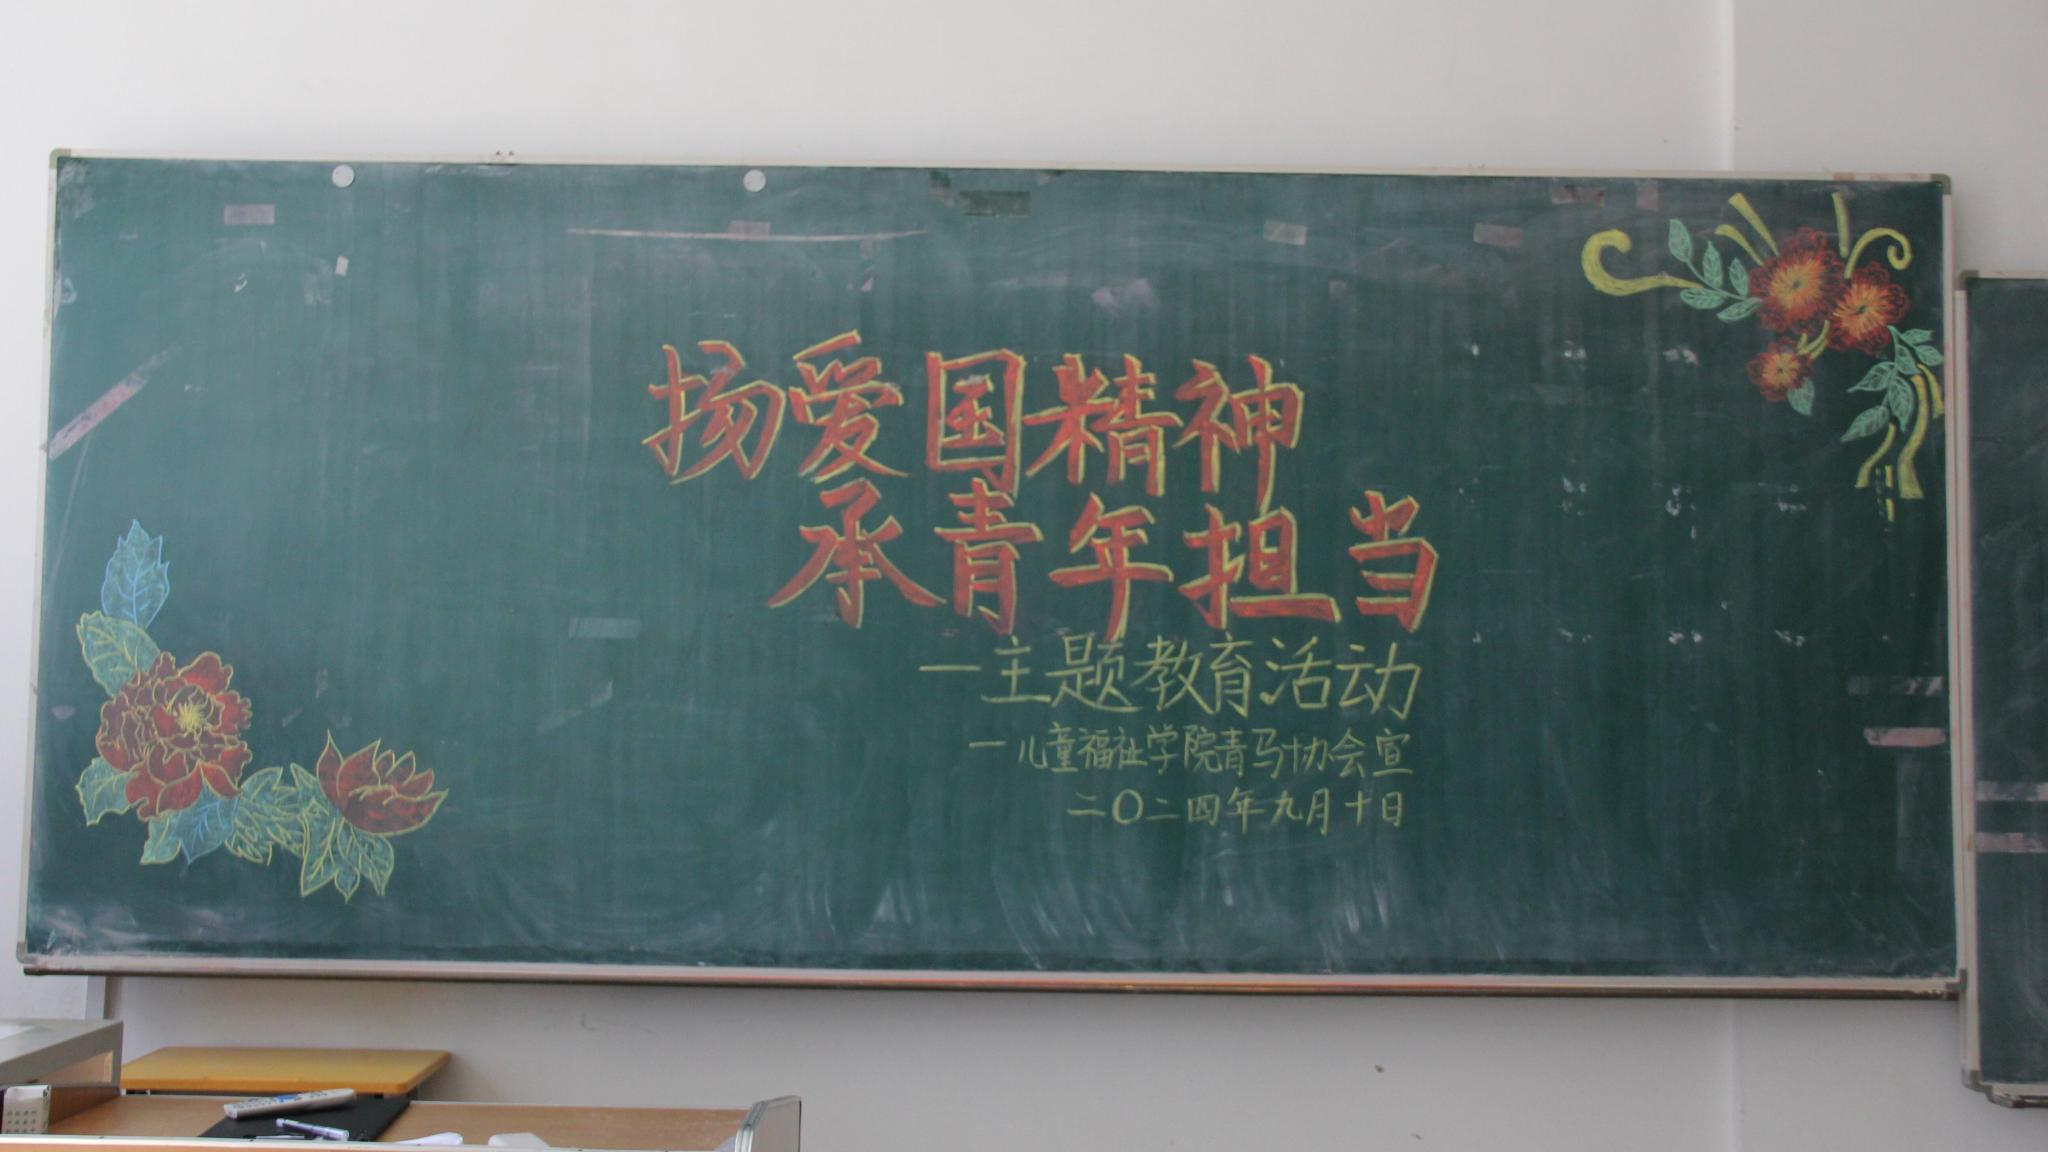 扬爱国精神
承青年担当
一主题教育活动
一儿童福祉学院青马协会宣
二〇二四年九月十日